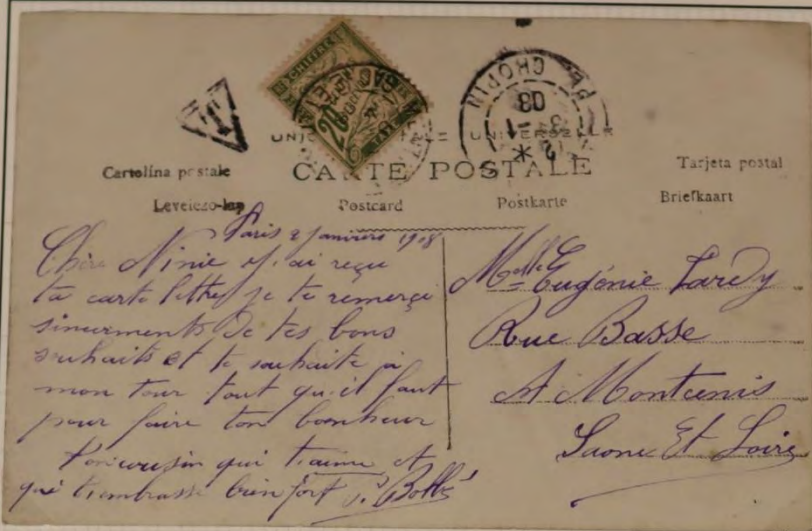 CHIFFRE
20
T
PL. CHOPIN
08
UNION POSTALE UNIVERSELLE
CARTE POSTALE
Cartolina postale
Tarjeta postal
Levelezo-lap
Postcard
Postkarte
Briefkaart
Paris 2 Janviers 1908
Chère Ninie J'ai reçu
ta carte lettre je te remerçi
sincerments de tes bons
souhaits et te souhaite à
mon tour tout qu'il faut
pour faire ton bonheur
Ton cousin qui t'aime et
qui t'embrasse bien fort
Melle Eugénie Laredy
Rue Basse
A Montcenis
Saone Et Loire